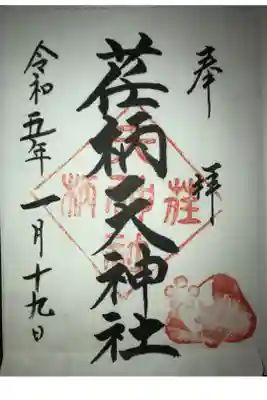 奉拝
荏柄天神社
令和五年一月十九日